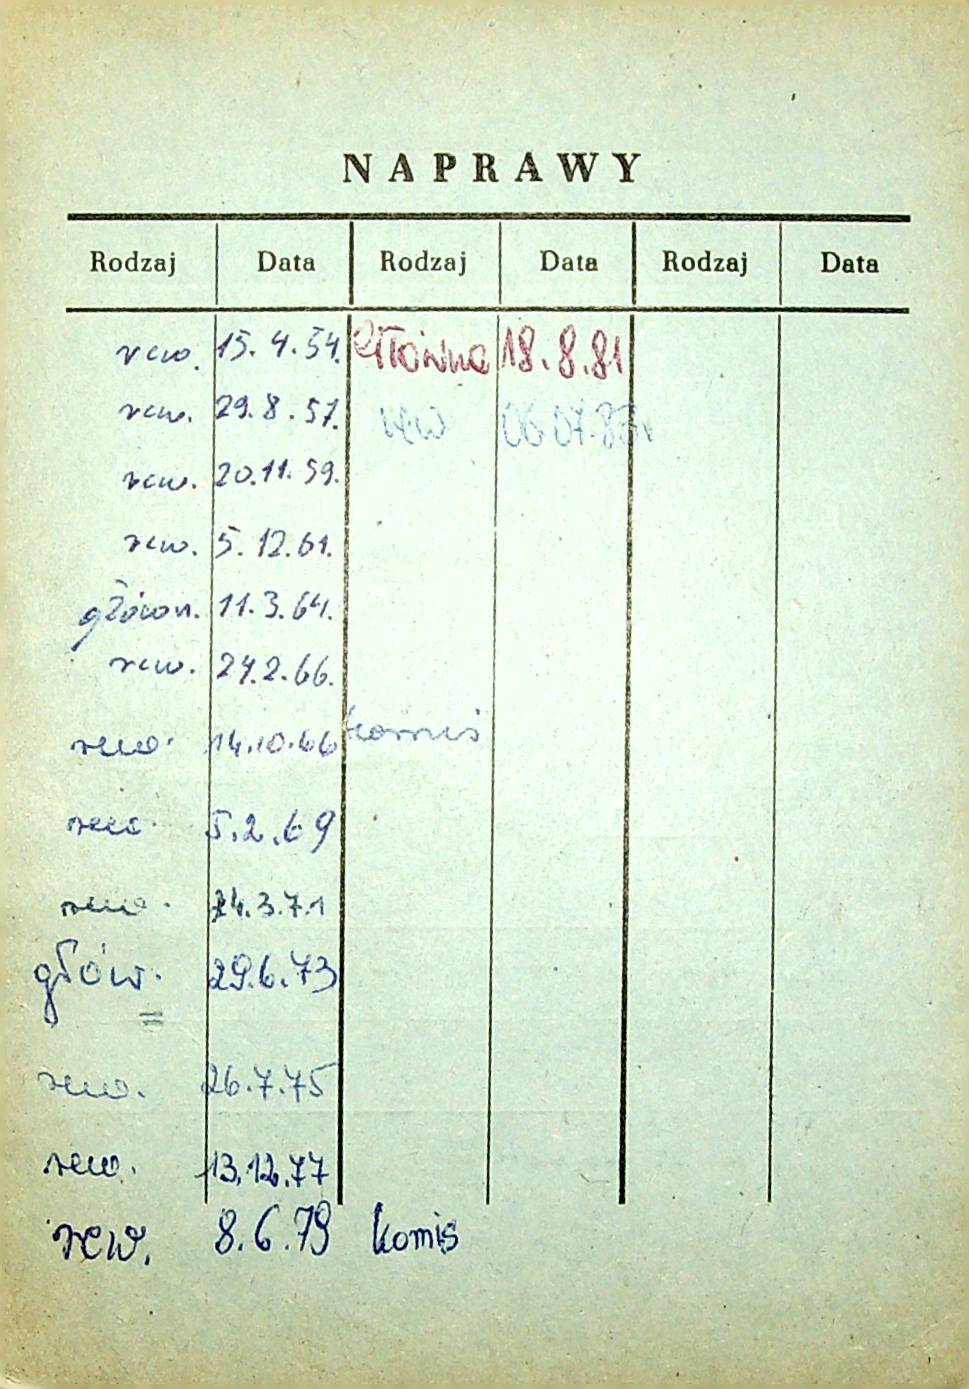 NAPRAWY
Rodzaj Data Rodzaj Data Rodzaj Data
rew. 15.4.54. Główna 18.8.81
rew. 29.8.57. rew 06 07.83r
rew. 20.11.59.
rew. 5.12.61.
główn. 11.3.64.
rew. 24.2.66.
rew. 14.10.66 komis
rew. 5.2.69
rew. 24.3.71
głów. 29.6.73
rew. 26.7.75
rew. 13.12.77
rew. 8.6.79 komis